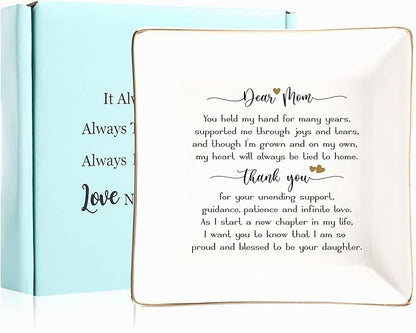 It Al
Always
Always
Love N
Dear Mom
You held my hand for many years,
supported me through joys and tears,
and though I'm grown and on my own,
my heart will always be tied to home.
Thank you
for your unending support,
guidance, patience and infinite love.
As I start a new chapter in my life,
I want you to know that I am so
proud and blessed to be your daughter.